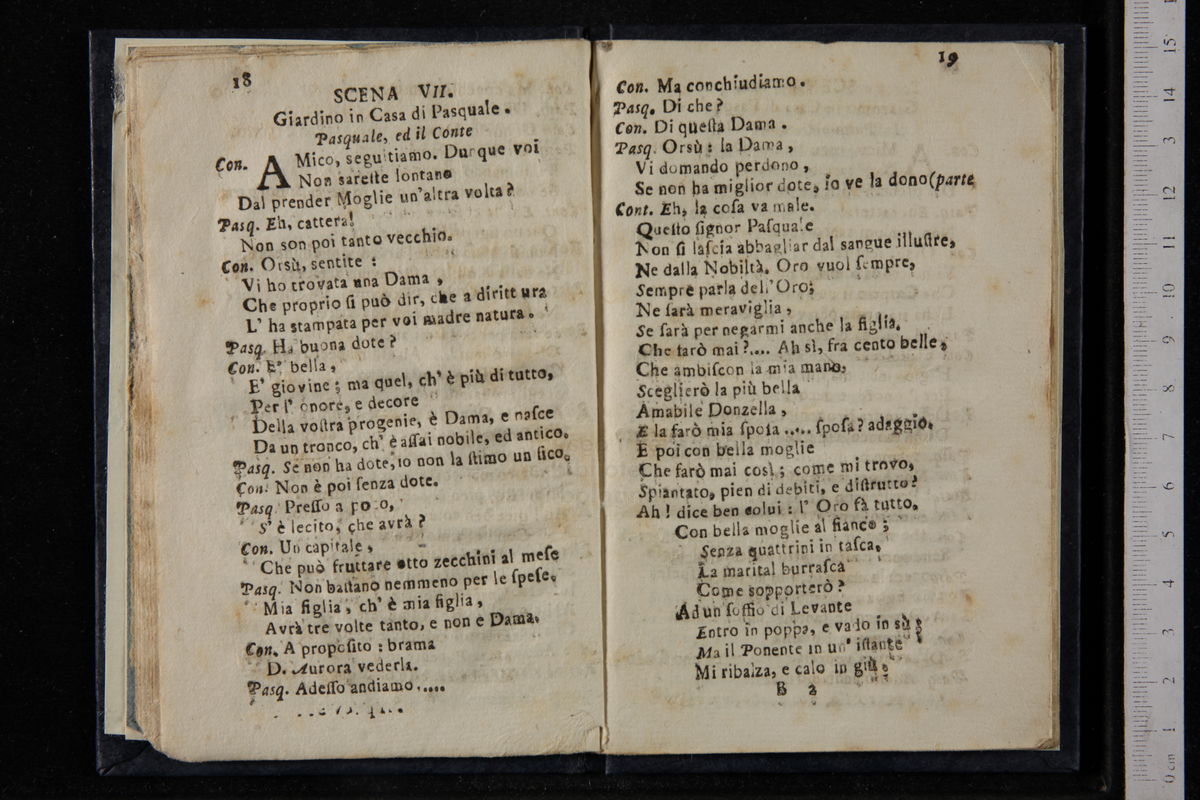 18
SCENA VII.
Giardino in Casa di Pasquale.
Pasquale, ed il Conte
Con. AMico, seguitiamo. Dunque voi
Non sareste lontano
Dal prender Moglie un'altra volta?
Pasq. Eh, cattera!
Non son poi tanto vecchio.
Con. Orsù, sentite :
Vi ho trovata una Dama ,
Che proprio ſi può dir, che a dirittura
L' ha stampata per voi madre natura.
Pasq. Ha buona dote?
Con. E' bella,
E' giovine ; ma quel, ch' è più di tutto,
Per l' onore, e decore
Della voſtra progenie, è Dama, e naſce
Da un tronco, ch' è aſſai nobile, ed antico.
Pasq. Se non ha dote, io non la ſtimo un fico.
Con. Non è poi ſenza dote.
Pasq. Preſſo a poco,
S' è lecito, che avrà ?
Con. Un capitale,
Che può fruttare otto zecchini al meſe
Pasq. Non baſtano nemmeno per le ſpeſe.
Mia figlia, ch' è mia figlia,
Avrà tre volte tanto, e non e Dama.
Con. A propoſito : brama
D. Aurora vederla.
Pasq. Adeſſo andiamo.....
19
Con. Ma conchiudiamo.
Pasq. Di che?
Con. Di queſta Dama .
Pasq. Orsù : la Dama,
Vi domando perdono,
Se non ha miglior dote, io ve la dono(parte
Cont. Eh, la coſa va male.
Queſto ſignor Paſquale
Non ſi laſcia abbagliar dal sangue illuſtre,
Ne dalla Nobiltà. Oro vuol ſempre,
Sempre parla dell'Oro;
Ne ſarà meraviglia,
Se ſarà per negarmi anche la figlia.
Che farò mai ?.... Ah sì, fra cento belle,
Che ambiſcon la mia mano,
Sceglierò la più bella
Amabile Donzella,
E la farò mia ſpoſa ..... ſpoſa? adaggio.
E poi con bella moglie
Che farò mai così ; come mi trovo,
Spiantato, pien di debiti, e diſtrutto?
Ah ! dice ben colui : l' Oro fà tutto.
Con bella moglie al fianco ;
Senza quattrini in taſca,
La marital burraſca
Come sopporterò?
Ad un ſoffio di Levante
Entro in poppa, e vado in sù ;
Ma il Ponente in un' iſtante
Mi ribalza, e calo in giù ;
B 2